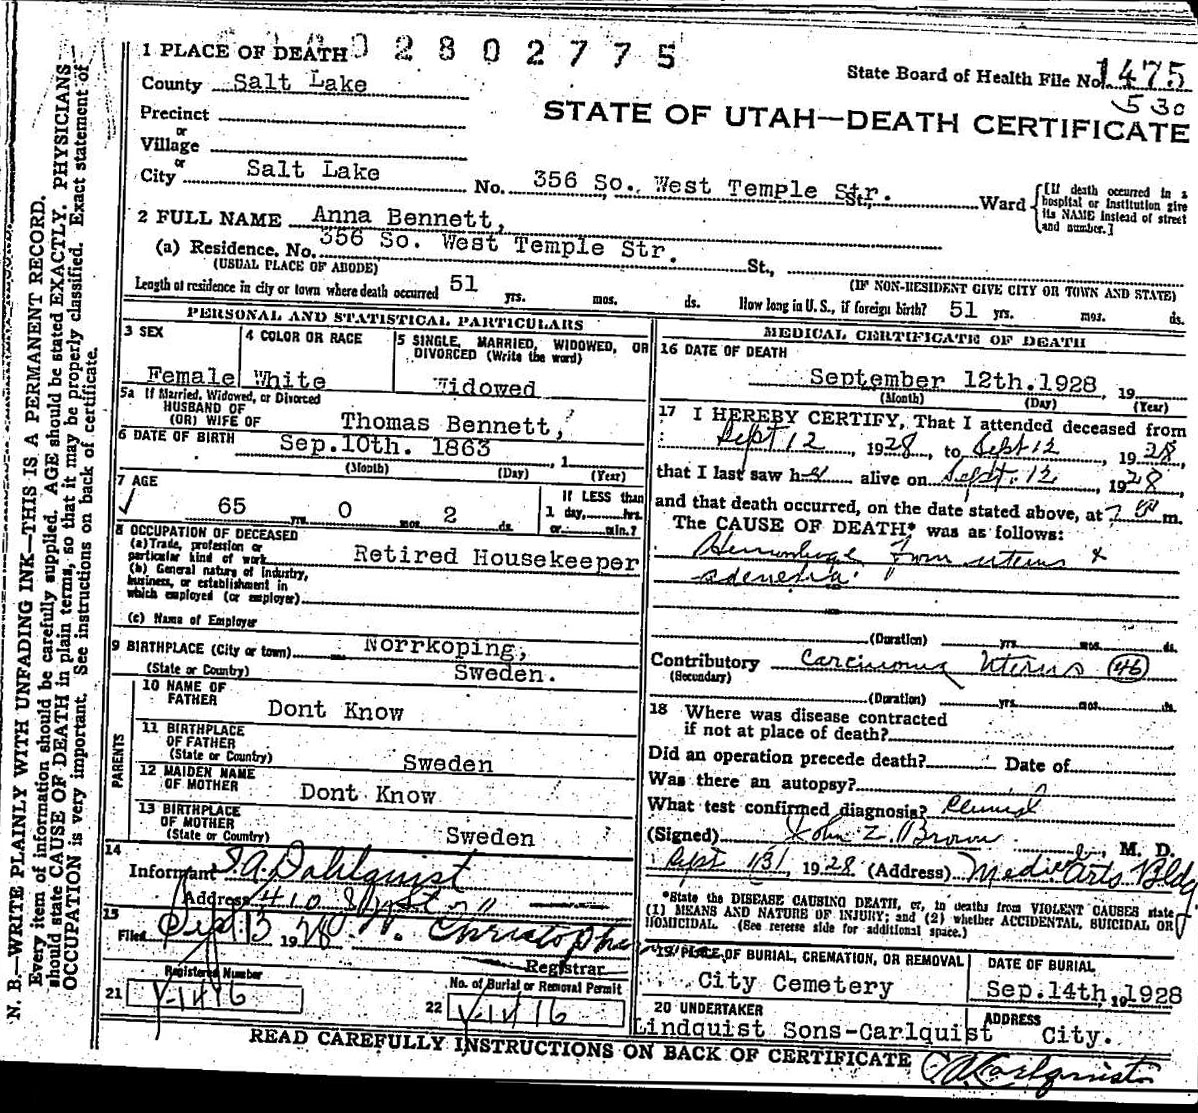 N. B.—WRITE PLAINLY WITH UNFADING INK—THIS IS A PERMANENT RECORD.
Every item of information should be carefully supplied. AGE should be stated EXACTLY. PHYSICIANS
should state CAUSE OF DEATH in plain terms, so that it may be properly classified. Exact statement of
OCCUPATION is very important. See instructions on back of certificate.
2802775
1 PLACE OF DEATH
State Board of Health File No. 1475
530
County Salt Lake
STATE OF UTAH—DEATH CERTIFICATE
Precinct
or
Village
or
City Salt Lake No. 356 So. West Temple Str. St., Ward
[If death occurred in a
hospital or institution give
its NAME instead of street
and number.]
2 FULL NAME Anna Bennett,
(a) Residence. No. 356 So. West Temple Str. St.,
(USUAL PLACE OF ABODE) (IF NON-RESIDENT GIVE CITY OR TOWN AND STATE)
Length of residence in city or town where death occurred 51 yrs. mos. ds. How long in U. S., if foreign birth? 51 yrs. mos. ds.
PERSONAL AND STATISTICAL PARTICULARS
3 SEX
Female
4 COLOR OR RACE
White
5 SINGLE, MARRIED, WIDOWED, OR
DIVORCED (Write the word)
Widowed
5a If Married, Widowed, or Divorced
HUSBAND OF
(OR) WIFE OF Thomas Bennett,
6 DATE OF BIRTH Sep.10th. 1863, 1
(Month) (Day) (Year)
7 AGE
65 yrs. 0 mos. 2 ds.
If LESS than
1 day, hrs.
or min.?
8 OCCUPATION OF DECEASED
(a) Trade, profession or
particular kind of work Retired Housekeeper
(b) General nature of Industry,
business, or establishment in
which employed (or employer)
(c) Name of Employer
9 BIRTHPLACE (City or town) Norrkoping,
(State or Country) Sweden.
PARENTS
10 NAME OF
FATHER Dont Know
11 BIRTHPLACE
OF FATHER
(State or Country) Sweden
12 MAIDEN NAME
OF MOTHER Dont Know
13 BIRTHPLACE
OF MOTHER
(State or Country) Sweden
14
Informant S.A. Dahlquist
Address 410
15
Filed Sept 13 1928
Registrar
Registered Number
21
No. of Burial or Removal Permit
22
MEDICAL CERTIFICATE OF DEATH
16 DATE OF DEATH
September 12th.1928, 19
(Month) (Day) (Year)
17 I HEREBY CERTIFY, That I attended deceased from
Sept 12 1928, to Sept 12, 1928
that I last saw her alive on Sept. 12, 1928,
and that death occurred, on the date stated above, at 7 P m.
The CAUSE OF DEATH* was as follows:
Hemorrhage from uterus &
(Duration) yrs. mos. ds.
Contributory Carcinoma Uterus (46)
(Secondary)
(Duration) yrs. mos. ds.
18 Where was disease contracted
if not at place of death?
Did an operation precede death? Date of
Was there an autopsy?
What test confirmed diagnosis? Clinical
(Signed) John Z. Brown, M. D.
Sept 13, 1928 (Address) Medical Arts Bldg
*State the DISEASE CAUSING DEATH, or, in deaths from VIOLENT CAUSES state
(1) MEANS AND NATURE OF INJURY; and (2) whether ACCIDENTAL, SUICIDAL OR
HOMICIDAL. (See reverse side for additional space.)
19 PLACE OF BURIAL, CREMATION, OR REMOVAL
City Cemetery
DATE OF BURIAL
Sep.14th, 19 1928
20 UNDERTAKER
Lindquist Sons-Carlquist
ADDRESS
City.
READ CAREFULLY INSTRUCTIONS ON BACK OF CERTIFICATE